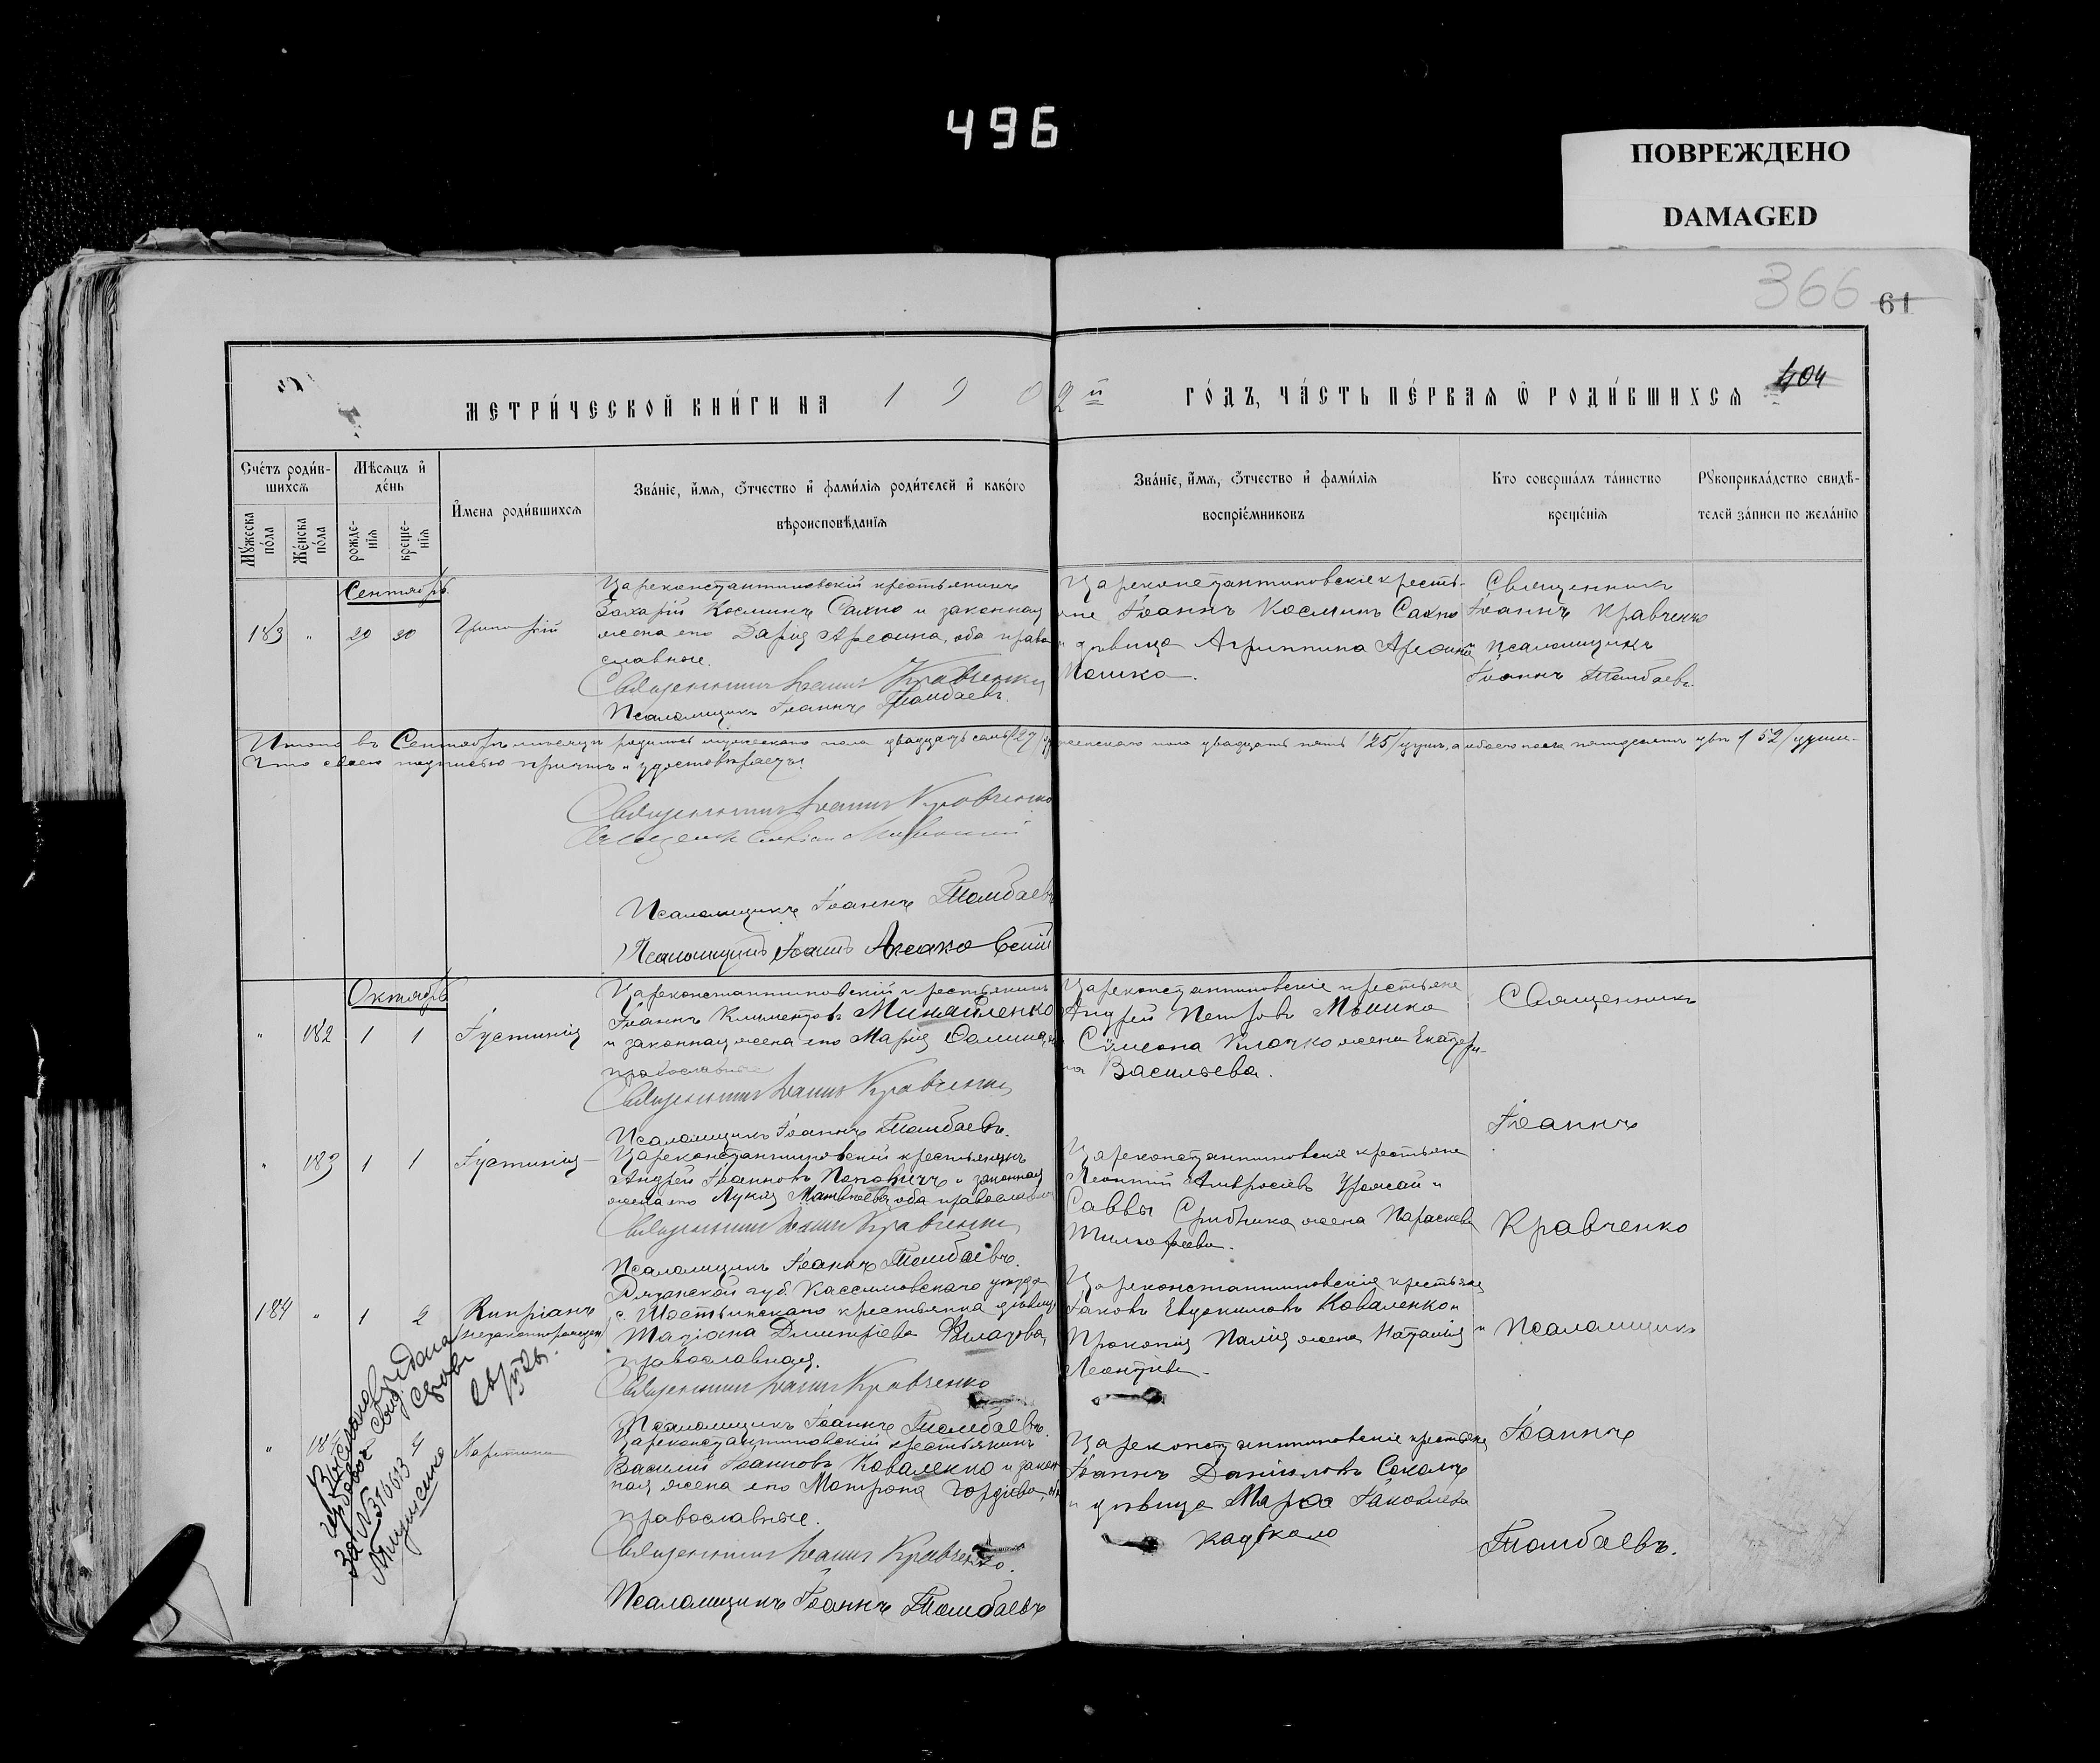 496
ПОВРЕЖДЕНО
DAMAGED
366 61
404
МЕТРИ́ЧЕСКОЙ КНИ́ГИ НА 1902й ГО́ДЪ, ЧА́СТЬ ПЕ́РВАѦ Ѽ РОДИ́ВШИХСѦ
Сче́тъ роди́в-
шихсѧ
Мѣ́сѧцъ и҆
де́нь
Му́жеска
по́ла
Же́нска
по́ла
рожде-
нїѧ
креще-
нїѧ
И҆мена роди́вшихсѧ
Зва́нїе, и҆́мѧ, ѻ҆́тчество и҆ фами́лїѧ роди́телей и҆ како́го
вѣроисповѣ́данїѧ
Зва́нїе, и҆́мѧ, ѻ҆́тчество и҆ фами́лїѧ
воспрїе́мниковъ
Кто соверша́лъ та́инство
креще́нїѧ
Рꙋкоприкла́дство свидѣ́-
телей за́писи по жела́нїю
Сентябрь
183 " 20 20 Григорій
Цареконстантиновскій крестьянинъ
Захарій Косминъ Сахно и законная
жена его Дарія Ареѳина, оба право
славные.
Священникъ Іоаннъ Кравченко
Псаломщикъ Іоаннъ Томбаевъ.
Цареконстантиновскіе кресть-
яне Іоаннъ Косминъ Сахно
и дѣвица Агриппина
Мошко.
Священникъ
Іоаннъ Кравченко
Псаломщикъ
Іоаннъ Томбаевъ.
Итого въ Сентябрѣ мѣсяцѣ родилось мужескаго пола двадцать семь /27/ женскаго пола двадцать пять /25/ душъ, а обоего пола пятьдесятъ двѣ /52/ души.
Что своею подписью причтъ и удостовѣряетъ:
Священникъ Іоаннъ Кравченко
Псаломщикъ Іоаннъ Томбаевъ
Псаломщикъ Іоаннъ
Октябрь
" 182 1 1 Іустинія
Цареконстантиновскій крестьянинъ
Іоаннъ Климентовъ Минайленко
и законная жена его Марія Ѳомина,
православные
Священникъ Іоаннъ Кравченко
Псаломщикъ Іоаннъ Томбаевъ.
Цареконстантиновскіе крестьяне
Андрей Петровъ Мошко
Сѵмеона Клочко жена Екатери-
на Васильева.
Священникъ
Іоаннъ
" 183 1 1 Іустинія
Цареконстантиновскій крестьянинъ
Андрей Іоанновъ Поповичъ и законная
жена его Лукія Матвѣева, оба православные
Священникъ Іоаннъ Кравченко
Псаломщикъ Іоаннъ Томбаевъ.
Цареконстантиновскіе крестьяне
Леонтій Амвросіевъ Урожай и
Саввы жена Параскева
Тимофеева.
Кравченко
184 " 1 2 Кипріанъ
незаконнорожден
Рязанской губ. Кассимовскаго уѣзда
с. крестьянка дѣвица
Татіана Димитріева Филатова,
православная.
Священникъ Іоаннъ Кравченко
Псаломщикъ Іоаннъ Томбаевъ.
Цареконстантиновскіе крестьяне
Іаковъ Евдокимовъ Коваленко и
Прокопія Палія жена Наталія
Леонтіева.
Псаломщикъ
Іоаннъ
за № 316613
" Харитина
Цареконстантиновскій крестьянинъ
Василій Іоанновъ Коваленко и закон
ная жена его Матрона Гордіева,
православные.
Священникъ Іоаннъ Кравченко.
Псаломщикъ Іоаннъ Томбаевъ
Цареконстантиновскіе крестьяне
Іоаннъ Даніиловъ Соколъ
и дѣвица Марѳа Іаковлева
Томбаевъ.